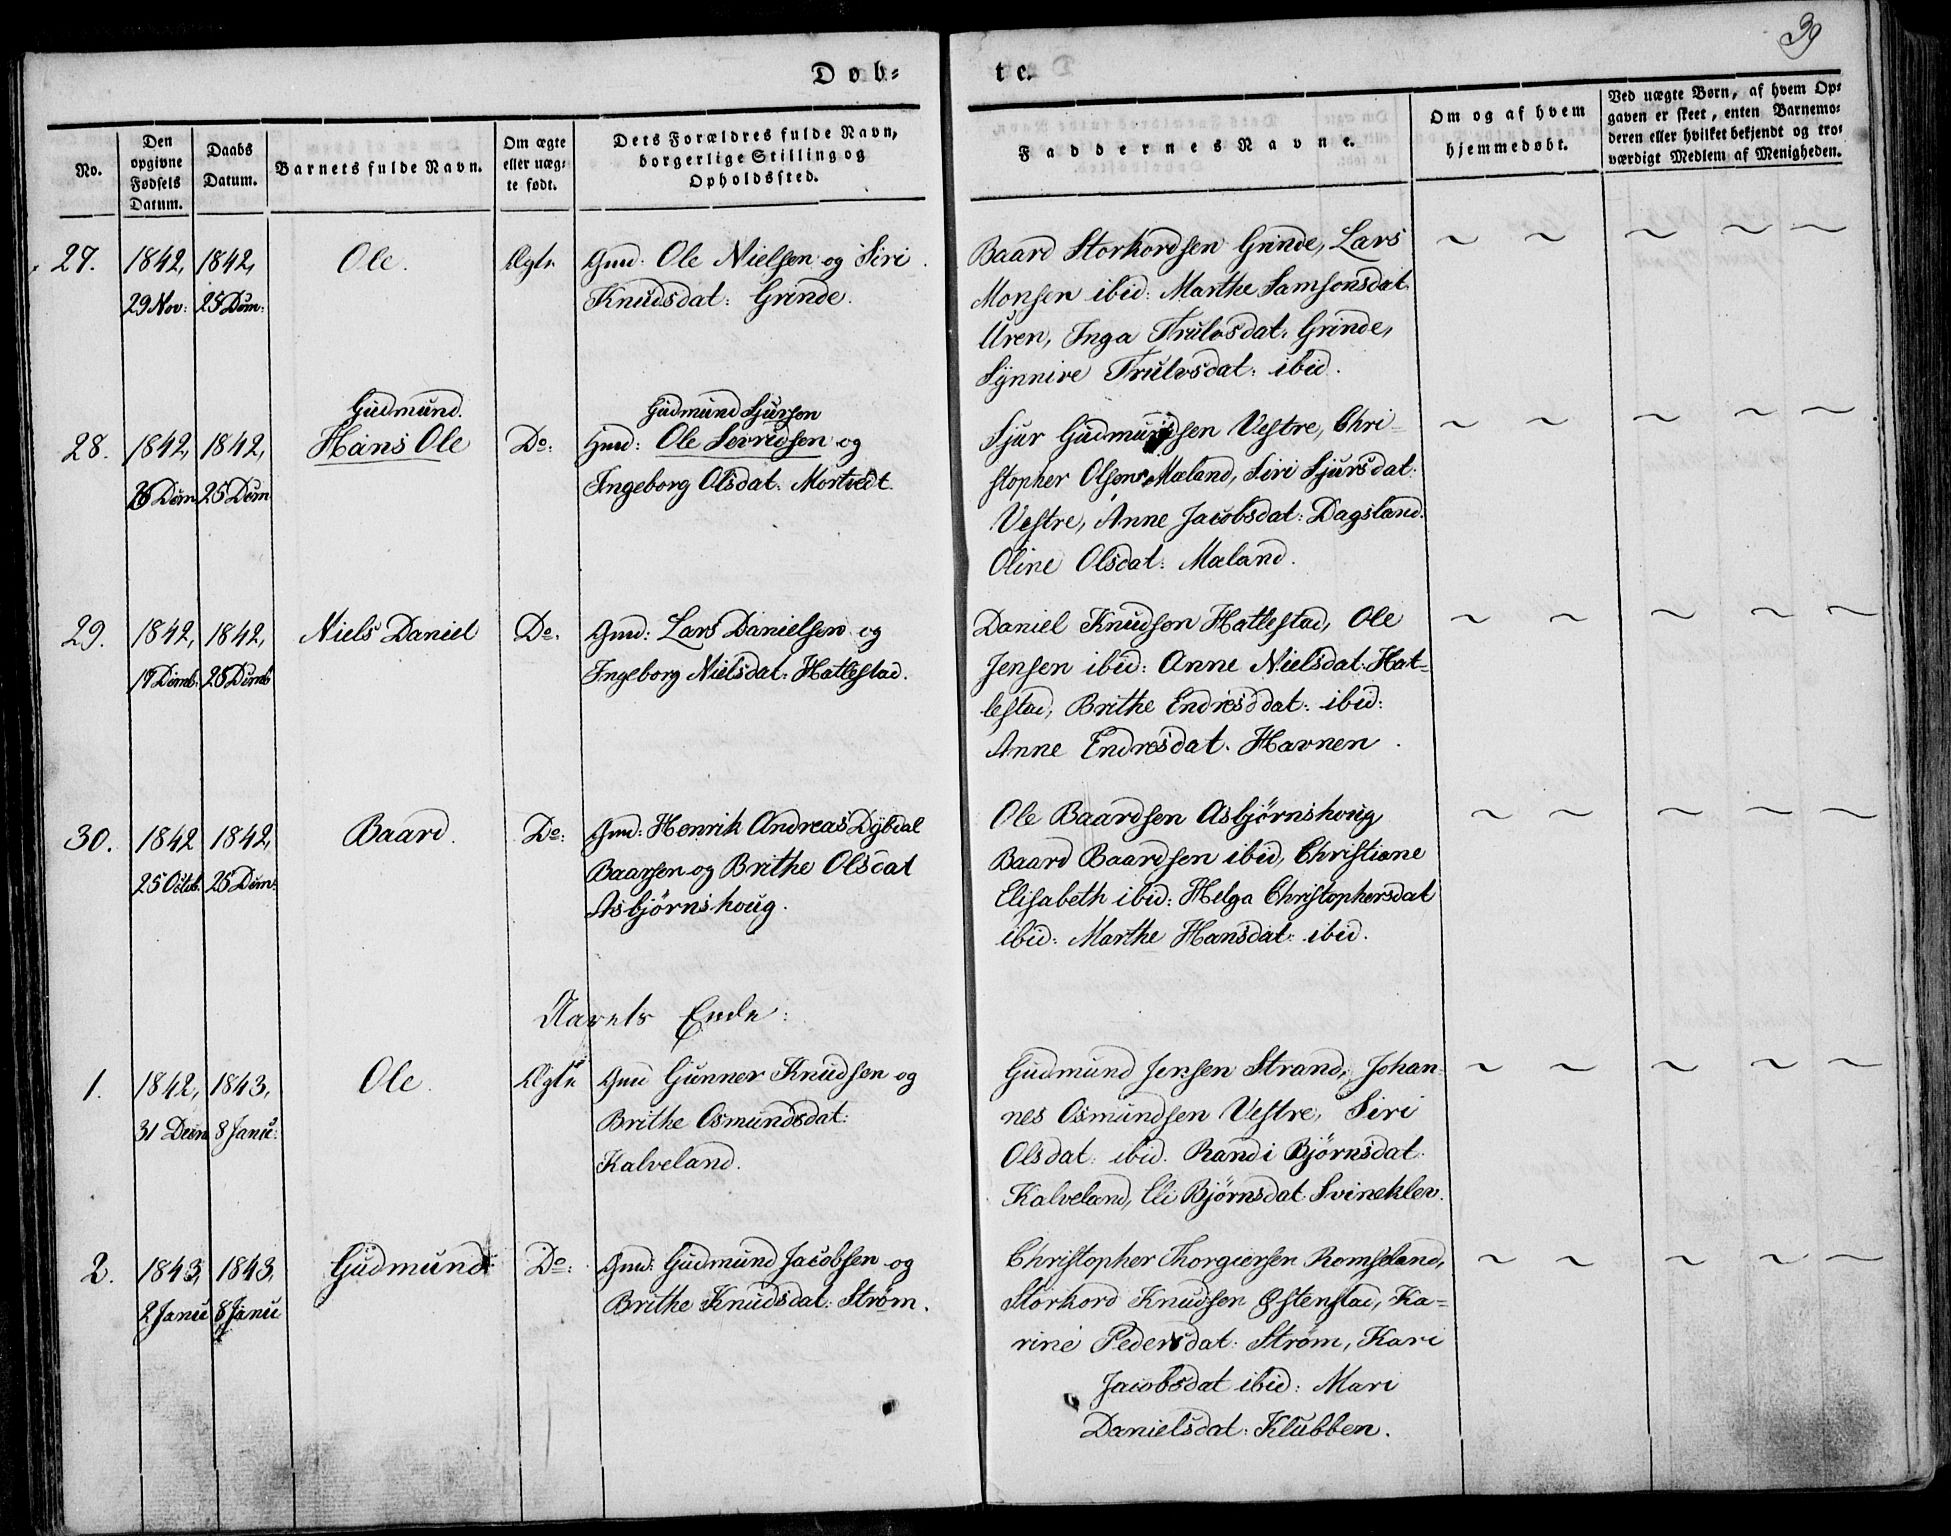 39
Døb=
te.
No.
Den opgivne Fødsels Datum.
Daabs Datum.
Barnets fulde Navn.
Om ægte eller uæg= te født.
Dets Forældres fulde Navn, borgerlige Stilling og Opholdssted.
Faddernes Navne.
Om og af hvem hjemmedøbt.
Ved uægte Børn, af hvem Op= gaven er skeet, enten Barnemo= deren eller hvilket bekjendt og tro= værdigt Medlem af Menigheden.
27. 1842, 1842, Ole. Ægte Gmd. Ole Nielsen og Siri
29 Nov: 25 Dem: Knudsdat: Grinde.
Baard Storkordsen Grinde, Lars
Monsen ibid: Marthe Samsonsdat.
Uren, Inga Trulvsdat. Grinde,
Synnive Trulvsdat: ibid.
Gudmund. Gudmund Sjurson
28. 1842, 1842, Hans Ole Do: Gmd: Ole Sevridsen og
26 Dem 25 Dem Ingeborg Olsdat. Mortvedt.
Sjur Gudmundsen Vestre, Chri-
stopher Olsen Mæland, Siri Sjursdat.
Vestre, Anne Jacobsdat: Dagsland.
Oline Olsdat: Mæland.
29. 1842, 1842, Niels Daniel Do. Gmd: Lars Danielsen og
17 Demb: 25 Demb Ingeborg Nielsdat. Hatlestad.
Daniel Knudsen Hatlestad, Ole
Jensen ibid: Anne Nielsdat. Hat=
lestad, Brithe Endresddat: ibid:
Anne Endresdat. Havnen.
30. 1842 1842, Baard. Do: Gmd: Henrik Andreas Dybdal
25 Octob. 25 Dem: Baarsen og Brithe Olsdat
Asbjørnshoug.
Ole Baardsen Asbjørnshoug,
Baard Baardsen ibid, Christiane
Elisabeth ibid: Helga Christophersdat
ibid: Marthe Hansdat: ibid.
Aarets Ende:
1. 1842, 1843, Ole. Ægte Gmd Gunner Knudsen og
31 Decm 8 Janu: Brithe Osmundsdat:
Kalveland.
Gudmund Jensen Strand, Johan-
nes Osmundsen Vestre, Siri
Olsdat: ibid. Randi Bjørnsdat.
Kalveland, Eli Bjørnsdat. Svineklev.
2. 1843, 1843, Gudmund. Do: Gmd: Gudmund Jacobsen og
2 Janu 8 Janu Brithe Knudsdat: Strøm.
Christopher Thorgiersen Romseland,
Storkord Knudsen Østenstad, Ka=
rine Pedersdat: Strøm, Kari
Jacobsdat ibid: Mari
Danielsdat: Klubben.